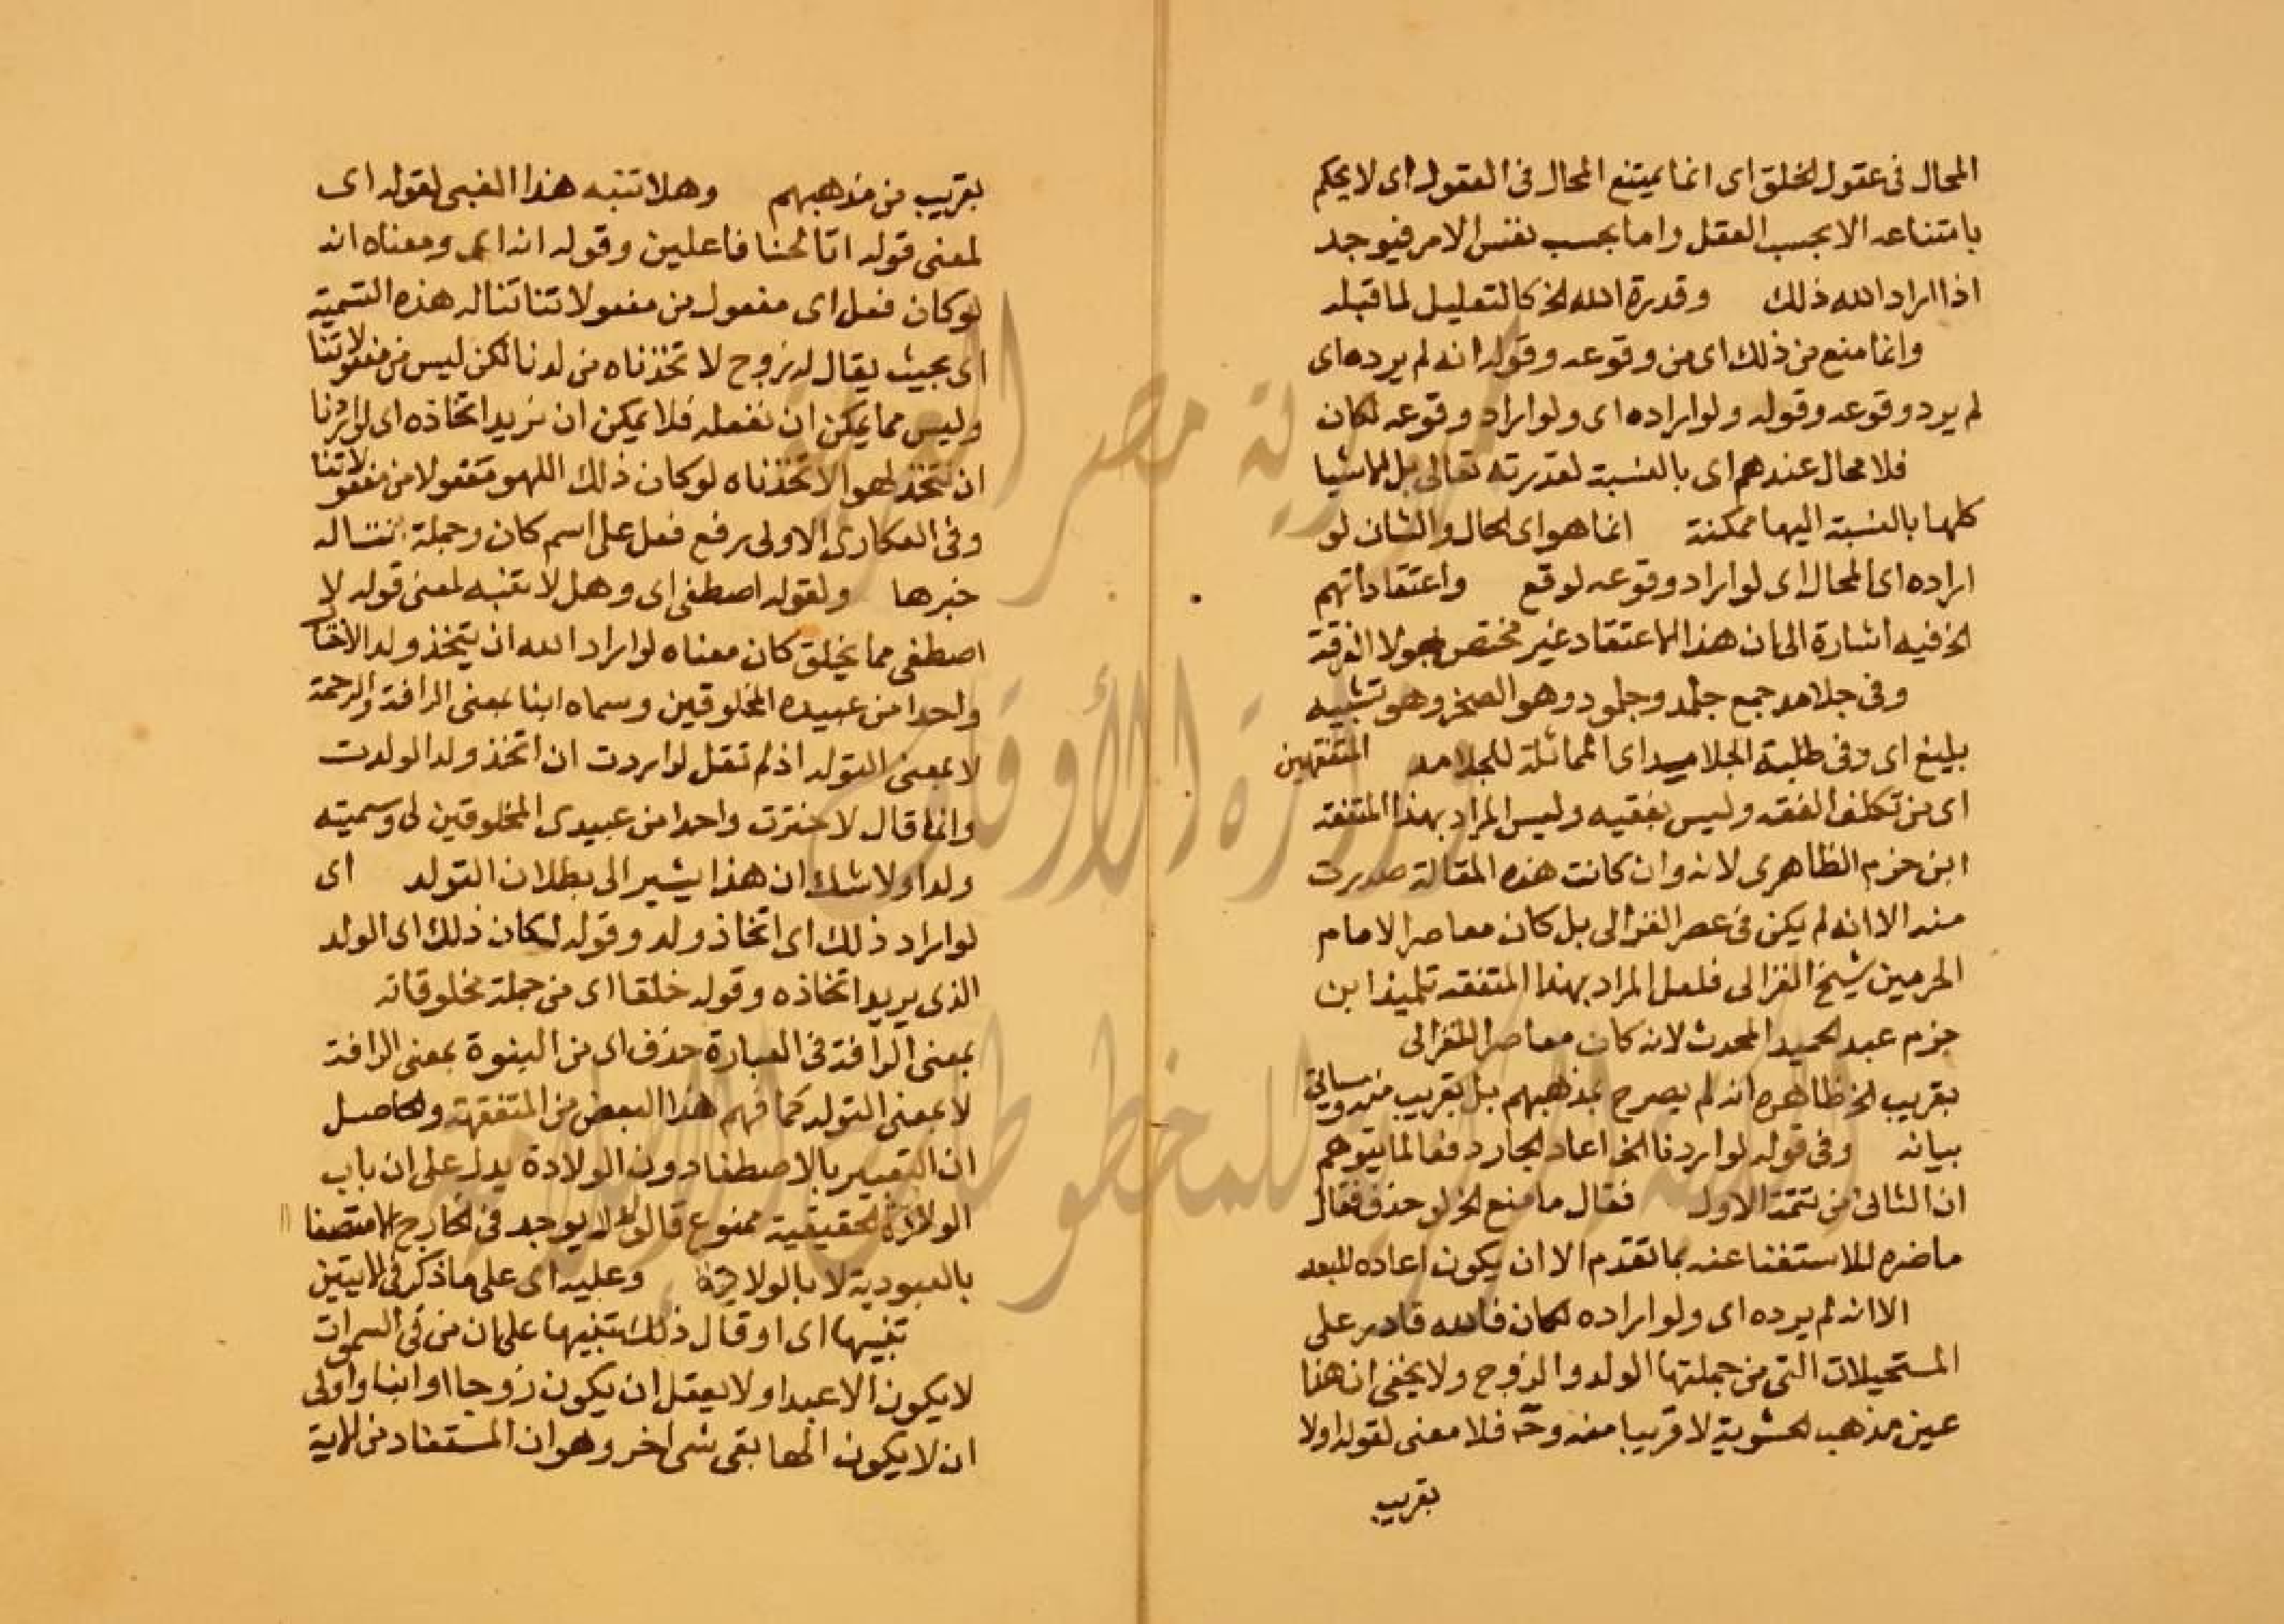 المحال فى عقول الخلق اى انما يمتنع المحال فى العقول اى لا يحكم
بامتناعه الا بحسب العقل واما بحسب نفس الامر فيوجد
اذا اراد الله ذلك وقدرة الله الخ كالتعليل لما قبله
وانما منع من ذلك اى من وقوعه وقوله انه لم يرده اى
لم يرد وقوعه وقوله ولو اراده اى ولو اراد وقوعه لكان
فلا محال عندهم اى بالنسبة لقدرته تعالى بل الاشيا
كلها بالنسبة اليها ممكنة انما هو اى الحال والشان لو
اراده اى المحال اى لو اراد وقوعه لوقع واعتقاداتهم
الخ فيه اشارة الى ان هذا الاعتقاد غير مختص بهولا الفرقة
وفى جلامد جمع جلمد وجلمود وهو الصخر وهو تشبيه
بليغ اى وفى طلبة الجلاميد اى المماثلة للجلامد المتفقهين
اى من تكلف الفقه وليس بفقيه وليس المراد بهذا المتفقه
ابن حزم الظاهرى لانه وان كانت هذه المقالة صدرت
منه الا انه لم يكن فى عصر الغزالى بل كان معاصر الامام
الحرمين شيخ الغزالى فلعل المراد بهذا المتفقه تلميذ ابن
حزم عبد الحميد المحدث لانه كان معاصرا للغزالى
بقريب الخ ظاهره انه لم يصرح بمذهبهم بل بقريب منه وسياتى
بيانه وفى قوله لو اردنا الخ اعاد الجار دفعا لما يتوهم
ان الثانى من تتمة الاول فقال ما منع الخ لو حذف فقال
ما ضره للاستغنا عنه بما تقدم الا ان يكون اعاده للبعد
الا انه لم يرده اى ولو اراده لكان فالله قادر على
المستحيلات التى من جملتها الولد والزوج ولا يخفى ان هذا
عين مذهب الحشوية لا قريبا منه وح فلا معنى لقوله اولا
بقريب
بقريب من مذهبهم وهلا تنبه هذا الغبى لقوله اى
لمعنى قوله اتا لحنا فاعلين وقوله انه اعى ومعناه انه
لو كان فعل اى مفعول من مفعولاتنا تناله هذه التسمية
اى بحيث يقال له زوج لاتخذناه من لدنا لكن ليس من مفعولاتنا
وليس مما يمكن ان نفعله فلا يمكن ان نريد اتخاذه اى لو اردنا
ان نتخذ لهوا لاتخذناه لو كان ذلك اللهو مفعولا من مفعولاتنا
وفى العكارى الاولى رفع فعل على اسم كان وجملة تناله
خبرها ولقوله اصطفى اى وهل لا تنبه لمعنى قوله لا
اصطفى مما يخلق كان معناه لو اراد الله ان يتخذ ولد الاختار
واحدا من عبيده المخلوقين وسماه ابنا بمعنى الرافة والرحمة
لا بمعنى التولد اذ لم تقل لو اردت ان اتخذ ولد الولدت
وانما قال لاخترت واحدا من عبيدى المخلوقين لى وسميته
ولدا ولا شك ان هذا يشير الى بطلان التولد اى
لو اراد ذلك اى اتخاذ ولد وقوله لكان ذلك اى الولد
الذى يريد اتخاذه وقوله خلقا اى من جملة مخلوقاته
بمعنى الرافة فى العبارة حذف اى من البنوة بمعنى الرافة
لا بمعنى التولد كما فهم هذا البعض من المتفقهة والحاصل
ان التعبير بالاصطفا دون الولادة يدل على ان باب
الولادة الحقيقية ممنوع قالولد لا يوجد فى الخارج الا متصفا
بالعبودية لا بالولادة وعليه اى على ما ذكر فى الايتين
تنبيها اى او قال ذلك تنبيها على ان من فى السموات
لا يكون الا عبدا ولا يعقل ان يكون زوجا او ابنا واولى
ان لا يكون الها بقى شى اخر وهو ان المستفاد من الاية